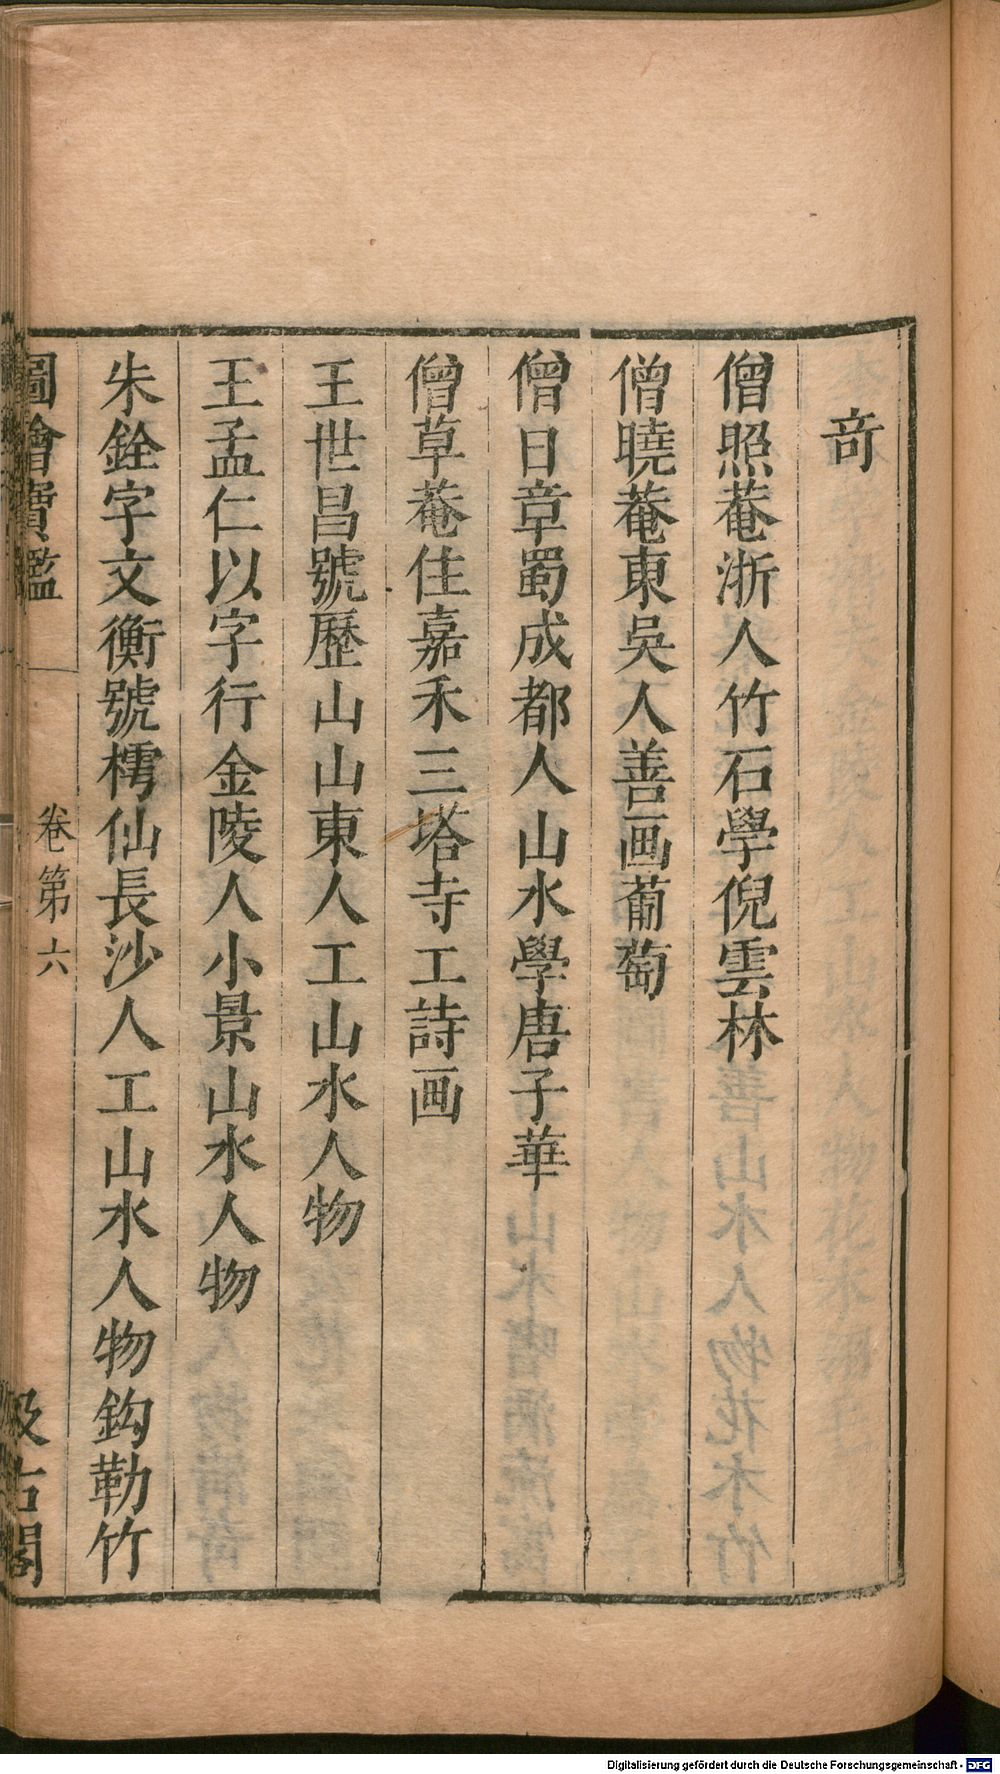 竒
僧照菴浙人竹石學倪雲林
僧曉菴東吳人善画葡萄
僧日章蜀成都人山水學唐子華
僧草菴住嘉禾三塔寺工詩画
王世昌號歷山山東人工山水人物
王孟仁以字行金陵人小景山水人物
朱銓字文衡號樗仙長沙人工山水人物鈎勒竹
圖繪寶鑑 卷第六 汲古閣
Digitalisierung gefördert durch die Deutsche Forschungsgemeinschaft - DFG